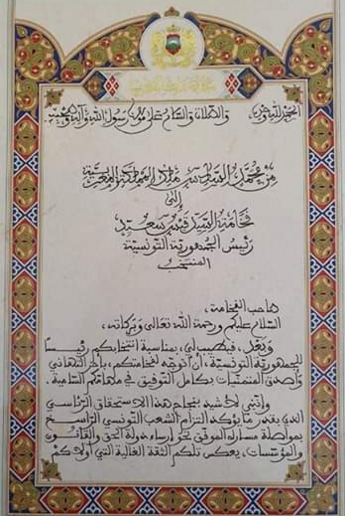 الحمد لله وحده والصلاة والسلام على مولانا رسول الله وآله وصحبه
من محمد السادس ملك المملكة المغربية
إلى
فخامة السيد قيس سعيد
رئيس الجمهورية التونسية
المنتخب
صاحب الفخامة،
السلام عليكم ورحمة الله تعالى وبركاته،
وبعد، فيطيب لي، بمناسبة انتخابكم رئيسا
للجمهورية التونسية، أن أتوجه لفخامتكم، بأحر التهاني
وأصدق المتمنيات بكامل التوفيق في مهامكم السامية.
وإنني لأشيد بنجاح هذا الاستحقاق الرئاسي
الذي بقدر ما يؤكد التزام الشعب التونسي الراسخ
بمواصلة مساره الموفق نحو إرساء دولة الحق والقانون
والمؤسسات، يعكس تلكم الثقة الغالية التي أولاكم